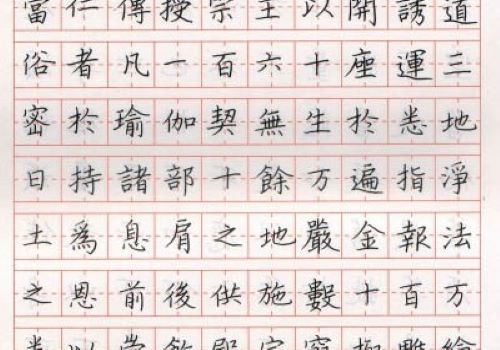 當仁傳授宗主以開誘道
俗者凡一百六十座運三
密於瑜伽契無生於悉地
日持諸部十餘万遍指淨
土為息肩之地嚴金報法
之恩前後供施數十百万
悉以崇飾殿宇窮極雕繪